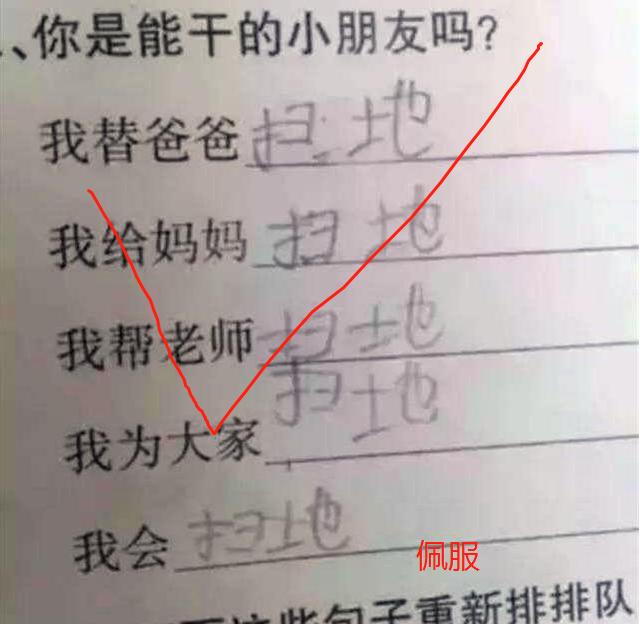 、你是能干的小朋友吗?
我替爸爸扫地
我给妈妈扫地
我帮老师扫地
我为大家扫地
我会扫地
佩服
些句子重新排排队